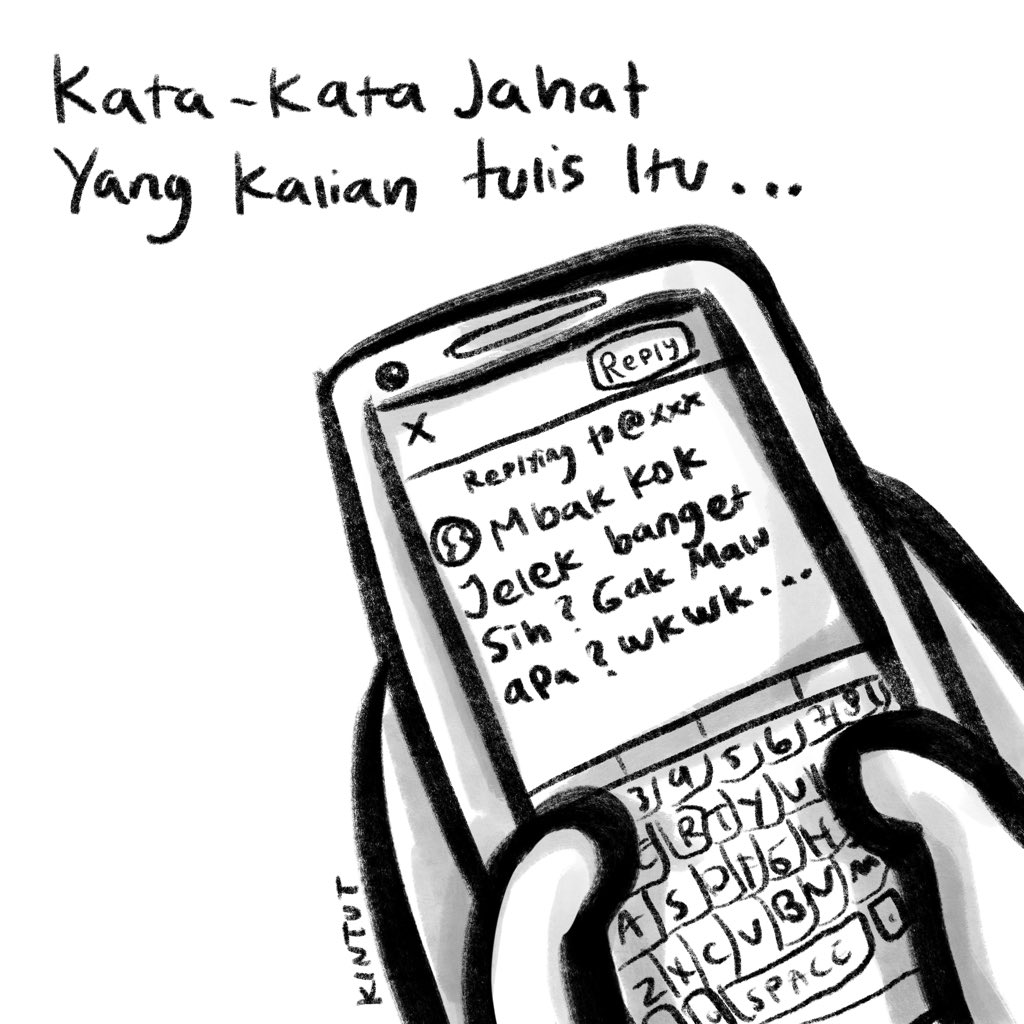 Kata-Kata Jahat
Yang Kalian tulis Itu...
Reply
X
Replying to @xxx
Mbak kok
Jelek banget
Sih? Gak Maw
apa? wkwk...
3 4 5 6 7 8
R T Y U
A S D F G H
Z X C V B N M
SPACE
KINTUT